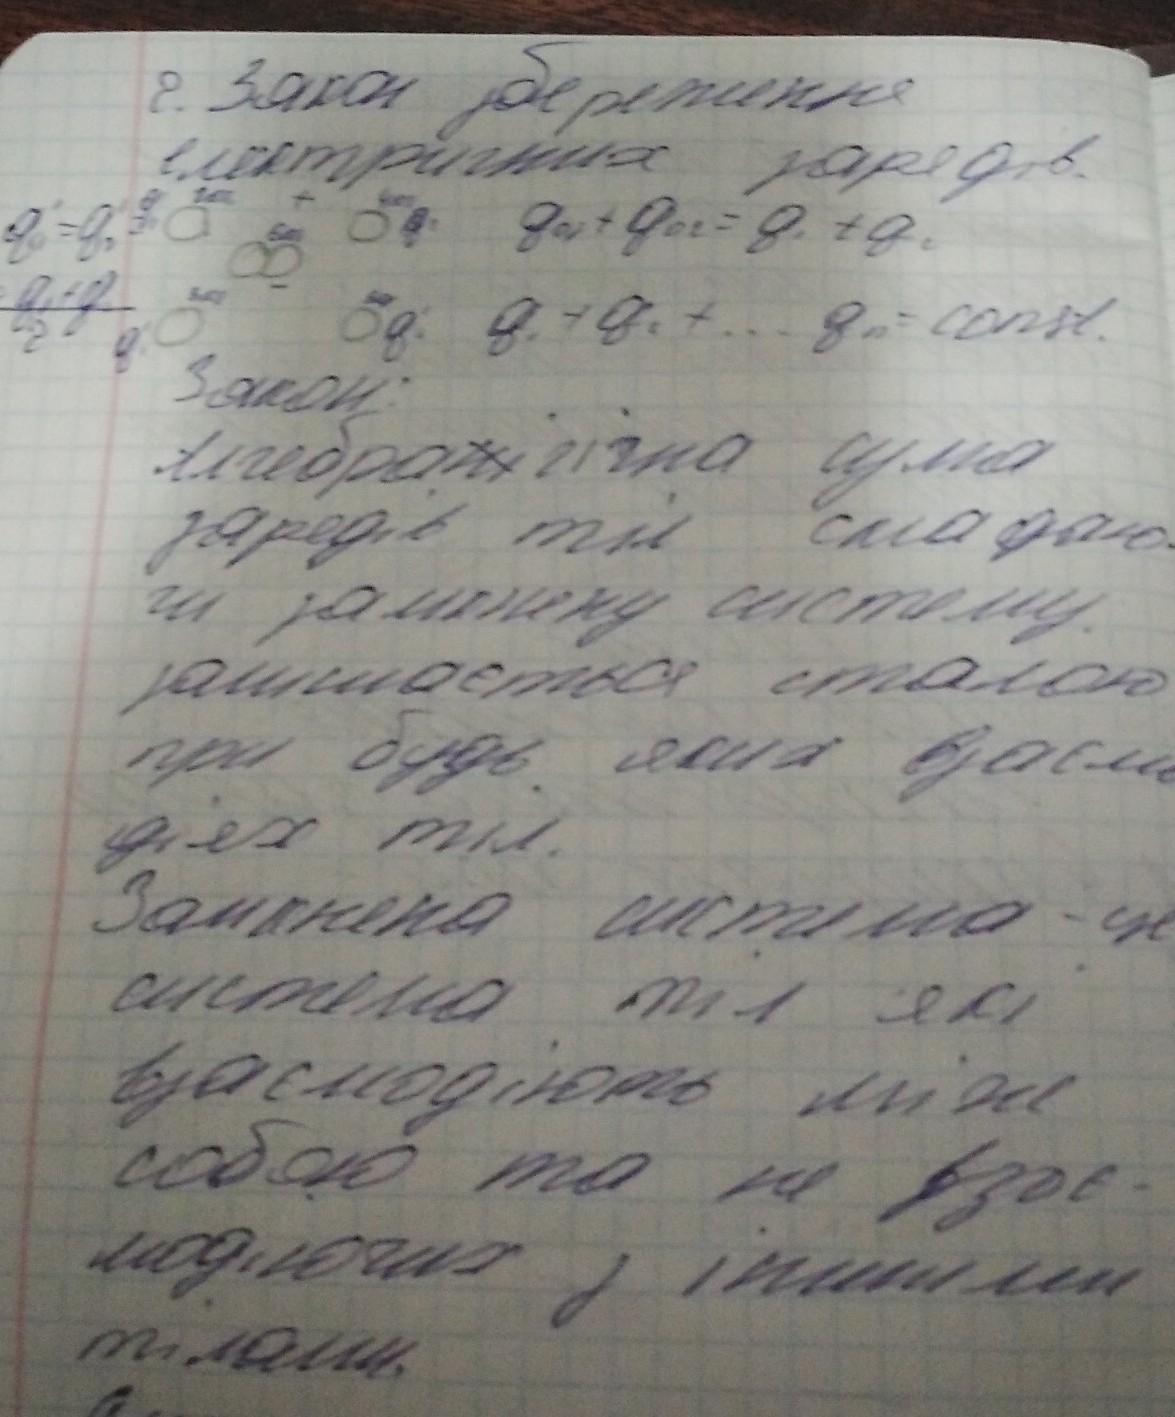 2. Закон збереження
електричних зарядів.
q₁' = q₂' + q₀₁ + q₀₂ = q₁ + q₂
q₁ + q₂
2
q₁' q₂' q₁ + q₂ + .... qₙ = const.
Закон:
Алгебраїчна сума
зарядів тіл складаю-
чи замкнену систему.
залишається сталою
при будь яких взаємо
діях тіл.
Замкнена система - це
система тіл які
взаємодіють між
собою та не взає-
модіючих з іншими
тілами.